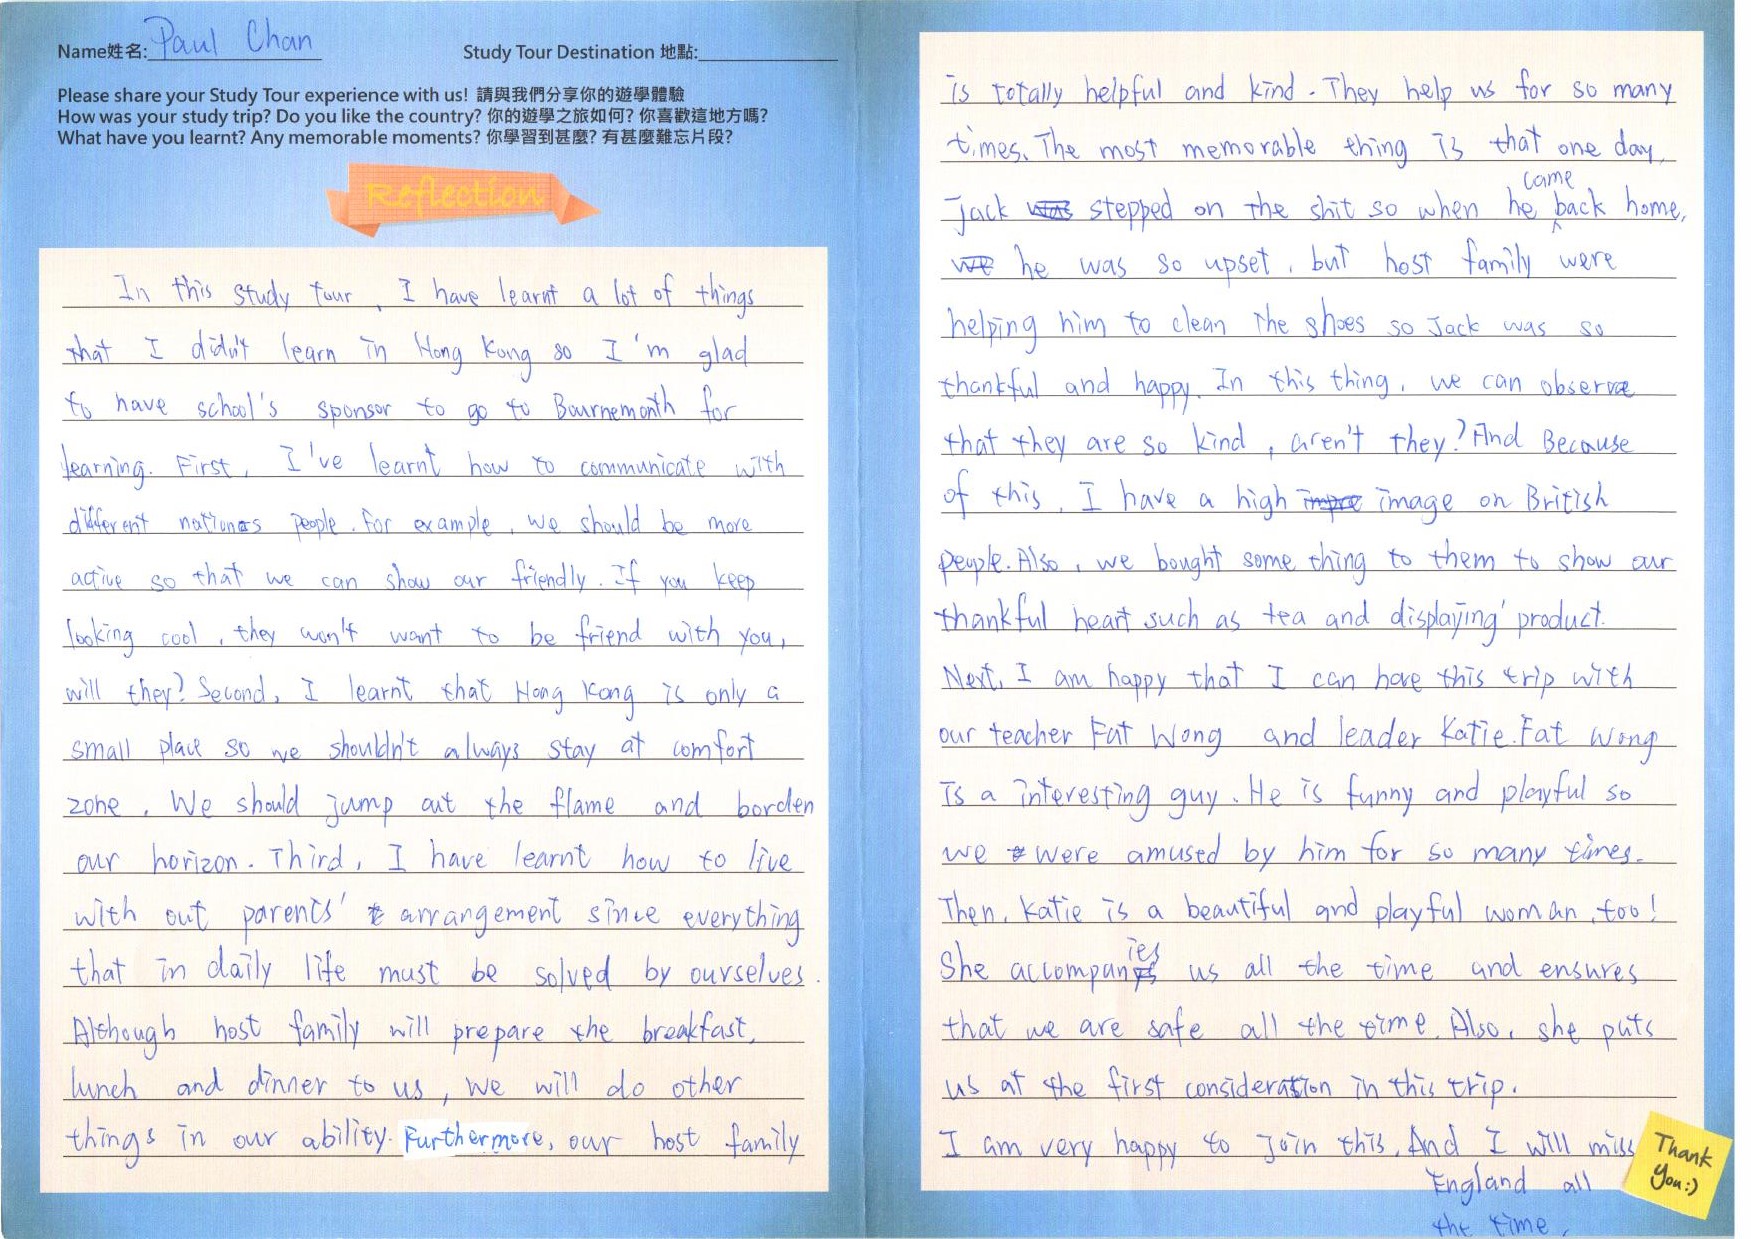 Name姓名: Paul Chan
Study Tour Destination 地點:
Please share your Study Tour experience with us! 請與我們分享你的遊學體驗
How was your study trip? Do you like the country? 你的遊學之旅如何? 你喜歡這地方嗎?
What have you learnt? Any memorable moments? 你學習到甚麼? 有甚麼難忘片段?
Reflection
In this study tour, I have learnt a lot of things
that I didn't learn in Hong Kong so I'm glad
to have school's sponsor to go to Bournemonth for
learning. First, I've learnt how to communicate with
different nations people. For example, we should be more
active so that we can show our friendly. If you keep
looking cool, they won't want to be friend with you,
will they? Second, I learnt that Hong Kong is only a
small place so we shouldn't always stay at comfort
zone. We should jump out the flame and borden
our horizon. Third, I have learnt how to live
with out parents' arrangement since everything
that in daily life must be solved by ourselves.
Although host family will prepare the breakfast,
lunch and dinner to us, we will do other
things in our ability. Furthermore, our host family
is totally helpful and kind. They help us for so many
times. The most memorable thing is that one day,
Jack was stepped on the shit so when he came back home,
we he was so upset, but host family were
helping him to clean the shoes so Jack was so
thankful and happy. In this thing, we can observe
that they are so kind, aren't they? And Because
of this, I have a high impre image on British
people. Also, we bought some thing to them to show our
thankful heart such as tea and displaying product.
Next, I am happy that I can have this trip with
our teacher Fat Wong and leader Katie. Fat Wong
is a interesting guy. He is funny and playful so
we were amused by him for so many times.
Then, Katie is a beautiful and playful woman, too!
She accompanies us all the time and ensures
that we are safe all the time. Also, she puts
us at the first consideration in this trip.
I am very happy to join this. And I will miss
England all
the time.
Thank
you:)